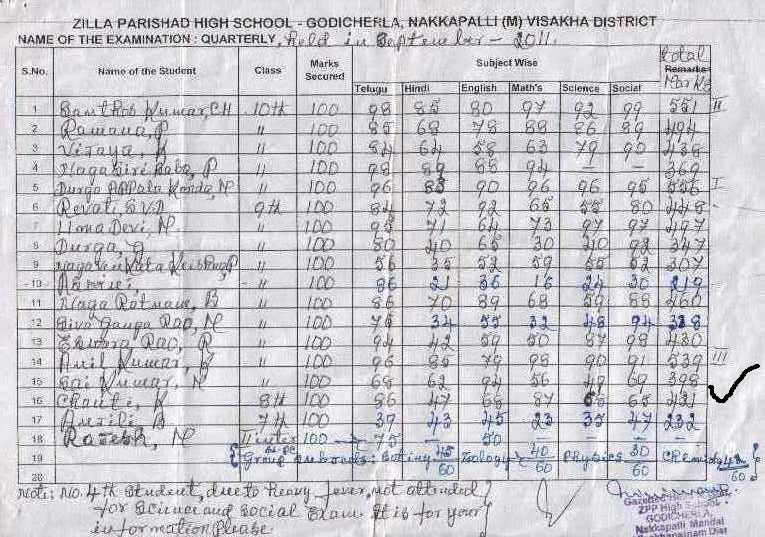 ZILLA PARISHAD HIGH SCHOOL - GODICHERLA, NAKKAPALLI (M) VISAKHA DISTRICT
NAME OF THE EXAMINATION : QUARTERLY, held in September - 2011.
S.No. Name of the Student Class Marks Secured Subject Wise Total Remarks Marks
Telugu Hindi English Math's Science Social
1 Santhosh Kumar, CH 10th 100 98 85 80 97 92 99 551 II
2 Ramana, P " 100 85 68 78 88 86 89 494
3 Vijaya, K " 100 84 64 58 63 79 90 438
4 Nagagiri Babu, P " 100 98 89 88 94 – – 369
5 Durga Appala Konda, N " 100 96 83 90 96 96 95 556 I
6 Revati S.V.D 9th 100 84 72 92 65 55 80 448
7 Uma Devi, N " 100 95 71 64 73 97 97 497
8 Durga, G " 100 80 40 65 30 40 92 347
9 " 100 56 35 52 59 55 52 307
10 " 100 86 21 36 16 24 30 219
11 Naga Ratnam, B " 100 86 70 89 68 59 88 460
12 Siva Ganga Rao, N " 100 75 34 55 32 48 94 338
13 Eswara Rao, R " 100 94 42 59 50 87 98 430
14 Anil Kumar, G " 100 96 85 79 98 90 91 539 III
15 Sai Kumar, N " 100 68 62 94 56 49 69 398
16 K 8th 100 86 47 66 87 65 431
17 Anjili, B 7th 100 39 43 45 23 35 47 232
18 Rajesh, N II inter 100 → 75 – 50 – – –
19 Bi.PC Group subjects: Botiny 45/60 Zoology 40/60 Physics 30/60 Chemistry /60
20
Note: No. 4th student, due to heavy fever, not attended
for Science and Social Exam. It is for your
information please
ZPP High School
GODICHERLA,
Nakkapalli Mandal
Visakhapatnam Dist